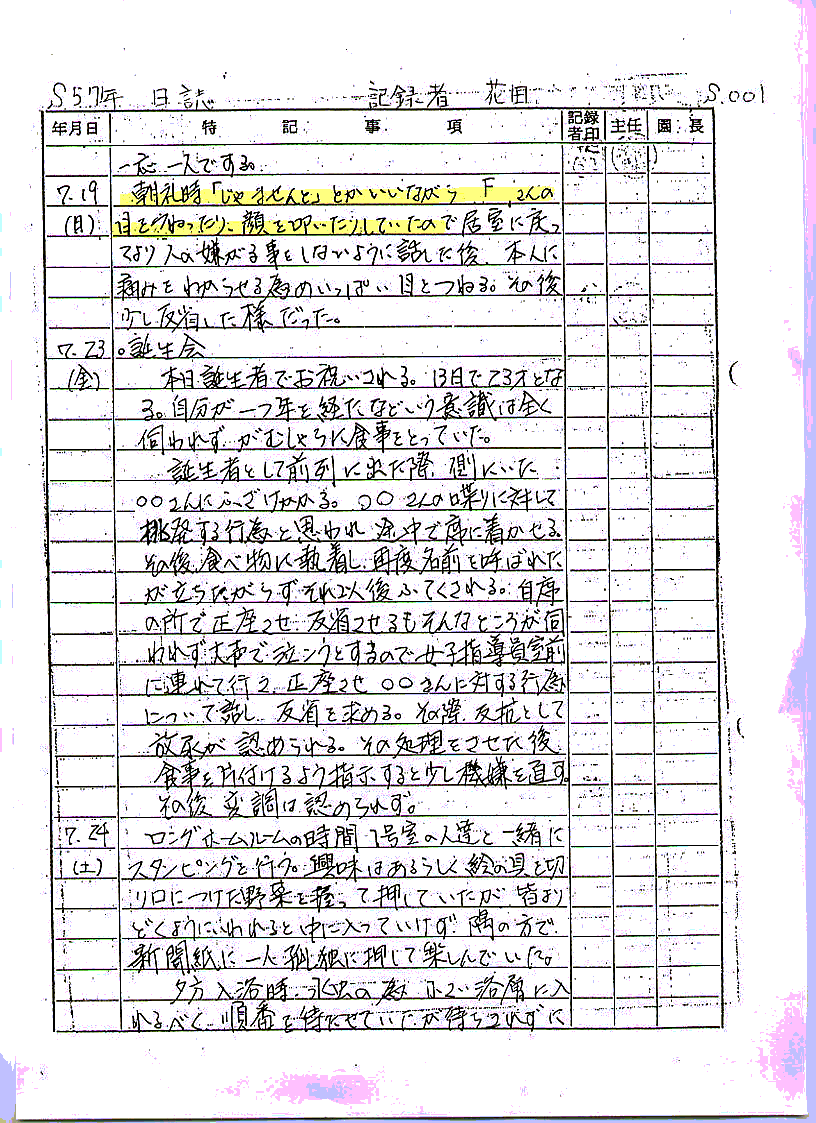 S.57年 日誌 記録者 花田 S.001
年月日 特記事項 記録者印 主任 園長
一応一人でする。
7.19 朝礼時「じゃませんと」とかいいながら F さんの
(日) 目をつねったり、顔を叩いたりしていたので居室に戻っ
てより人の嫌がる事をしないように話した後、本人に
痛みをわからせる為めいっぱい目をつねる。その後
少し反省した様だった。
7.23 ○誕生会
(金) 本日誕生者でお祝いされる。13日で23才とな
る。自分が一つ年を経たなどという意識は全く
伺われず がむしゃらに食事をとっていた。
誕生者として前列に出た際、側にいた
○○さんにふざけかかる。○○さんの喋りに対して
挑発する行為と思われ 途中で席に着かせる。
その後、食べ物に執着し、再度名前を呼ばれた
が立ちたがらず それ以後ふてくされる。自席
の所で正座させ 反省させるもそんなところが伺
われず大声で泣こうとするので女子指導員室前
に連れて行って 正座させ ○○さんに対する行為
について話し 反省を求める。その際、反抗として
放尿が認められる。その処理をさせた後
食事を片付けるよう指示すると少し機嫌を直す。
その後 変調は認められず。
7.24 ロングホームルームの時間 1号室の人達と一緒に
(土) スタンピングを行う。興味はあるらしく絵の具を切
り口につけた野菜を握って押していたが 皆より
どくようにいわれると中に入っていけず 隅の方で
新聞紙に一人孤独に押して楽しんでいた。
夕方入浴時、水虫の為 小さい浴層に入
れるべく 順番を待たせていたが待ちきれずに